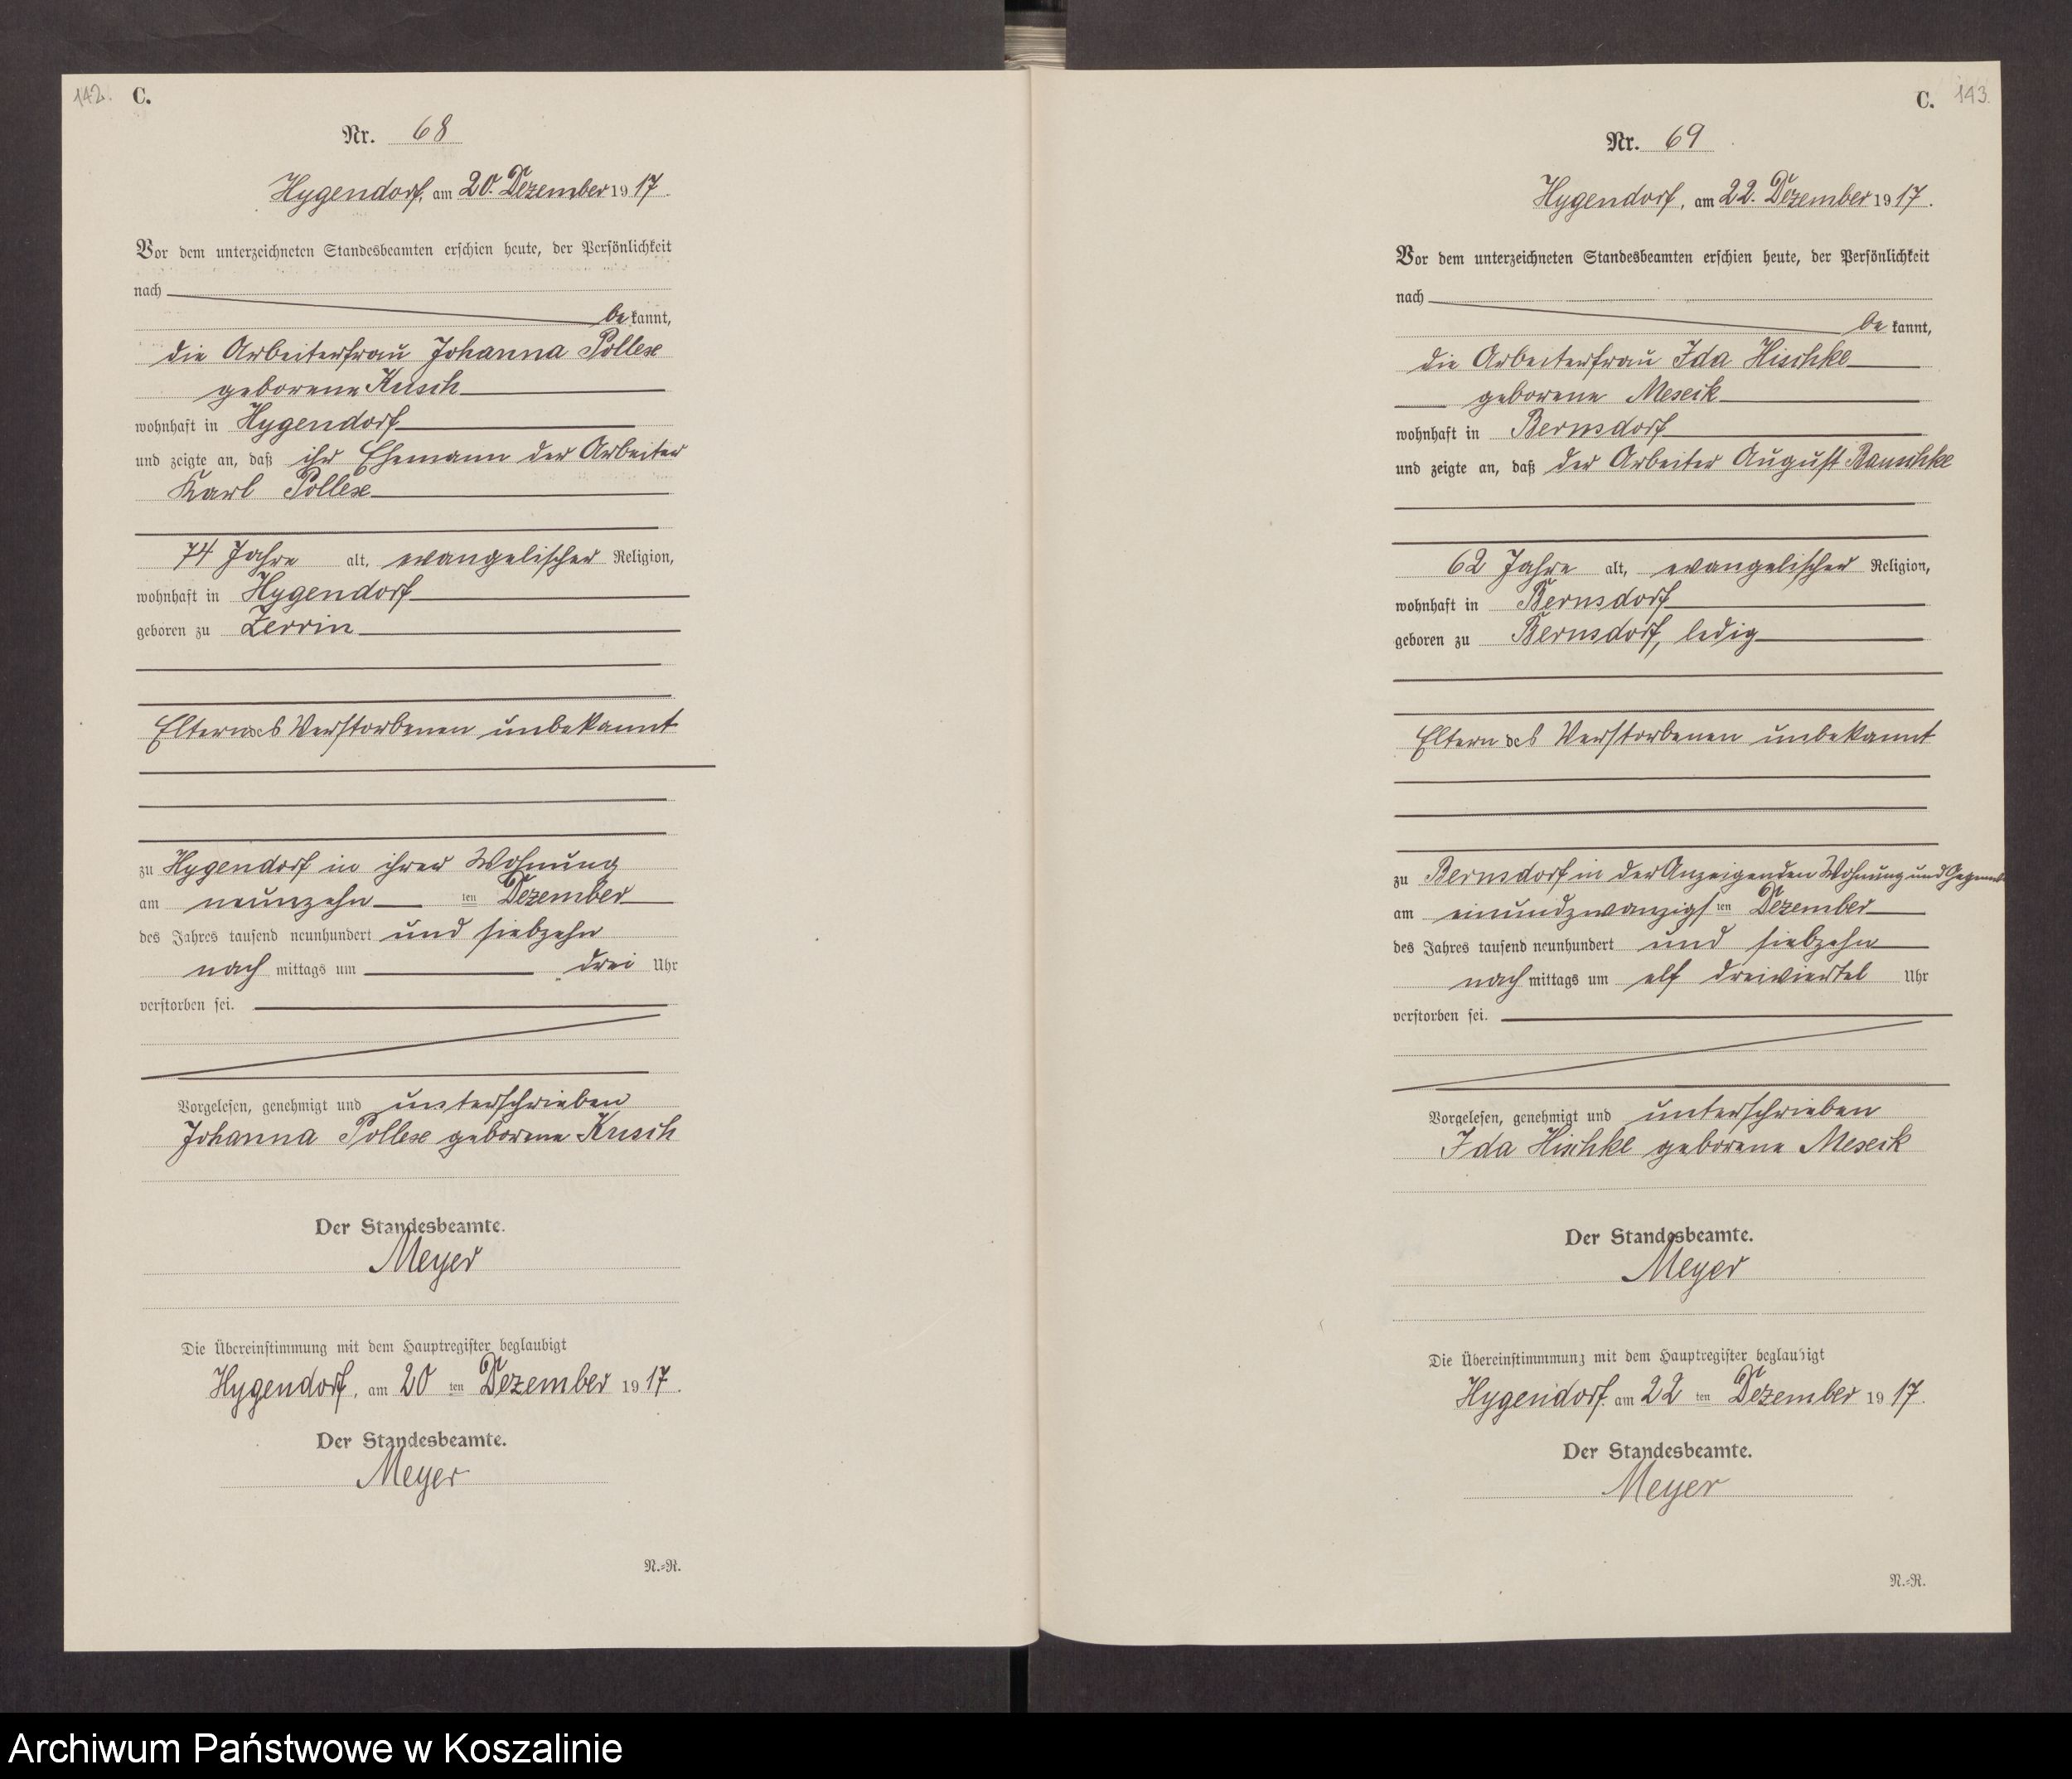 142. C.
Nr. 68
Hygendorf, am 20. Dezember 1917.
Vor dem unterzeichneten Standesbeamten erschien heute, der Persönlichkeit
nach
bekannt,
die Arbeiterfrau Johanna Pollex
geborene Krusch
wohnhaft in Hygendorf
und zeigte an, daß ihr Ehemann der Arbeiter
Karl Pollex
74 Jahre alt, evangelischer Religion,
wohnhaft in Hygendorf
geboren zu Zerrin
Eltern des Verstorbenen unbekannt
zu Hygendorf in ihrer Wohnung
am neunzehnten Dezember
des Jahres tausend neunhundert und siebzehn
nachmittags um drei Uhr
verstorben sei.
Vorgelesen, genehmigt und unterschrieben
Johanna Pollex geborene Krusch
Der Standesbeamte.
Meyer
Die Übereinstimmung mit dem Hauptregister beglaubigt
Hygendorf, am 20ten Dezember 1917.
Der Standesbeamte.
Meyer
N.=R.
C. 143.
Nr. 69
Hygendorf, am 22. Dezember 1917.
Vor dem unterzeichneten Standesbeamten erschien heute, der Persönlichkeit
nach
bekannt,
die Arbeiterfrau Ida Hischke
geborene Meseck
wohnhaft in Bernsdorf
und zeigte an, daß der Arbeiter August
62 Jahre alt, evangelischer Religion,
wohnhaft in Bernsdorf
geboren zu Bernsdorf, ledig
Eltern des Verstorbenen unbekannt
zu Bernsdorf in der Anzeigenden Wohnung und
am einundzwanzigsten Dezember
des Jahres tausend neunhundert und siebzehn
nachmittags um elf dreiviertel Uhr
verstorben sei.
Vorgelesen, genehmigt und unterschrieben
Ida Hischke geborene Meseck
Der Standesbeamte.
Meyer
Die Übereinstimmung mit dem Hauptregister beglaubigt
Hygendorf. am 22ten Dezember 1917.
Der Standesbeamte.
Meyer
N.=R.
Archiwum Państwowe w Koszalinie